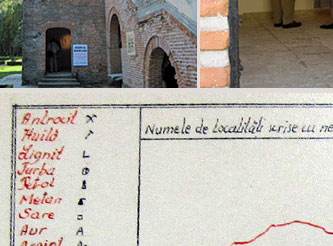 Antracit
Huilă
Lignit
Turba
Petrol
Metan
Sare
Aur
Argint
Numele de localităti scrise cu ne